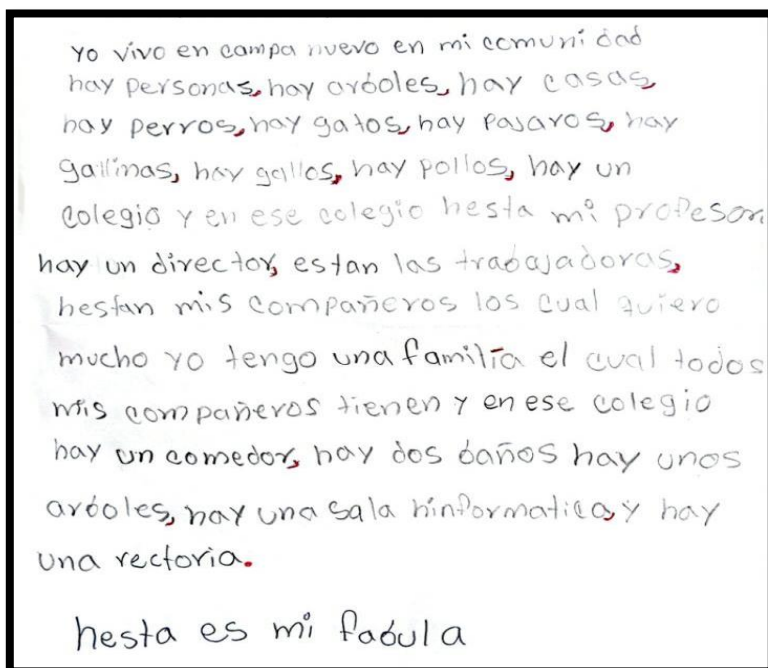 yo vivo en campa nuevo en mi comunidad
hay personas, hay arboles, hay casas,
hay perros, hay gatos, hay pajaros, hay
gallinas, hay gallos, hay pollos, hay un
colegio y en ese colegio hesta mi profesor,
hay un director, estan las trabajadoras,
hestan mis compañeros los cual quiero
mucho yo tengo una familia el cual todos
mis compañeros tienen y en ese colegio
hay un comedor, hay dos baños hay unos
arboles, hay una sala hinformatica, y hay
una rectoria.
hesta es mi fabula